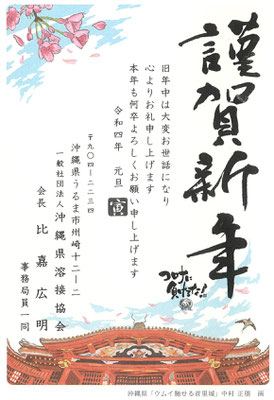 謹賀新年
旧年中は大変お世話になり
心よりお礼申し上げます
本年も何卒よろしくお願い申し上げます
令和四年 元旦
寅
コロナに負けるな!!
〒九〇四-二二三四
沖縄県うるま市州崎十二-二
一般社団法人 沖縄県溶接協会
会長 比嘉広明
事務局員一同
沖縄県「ウムイ馳せる首里城」中村 正朋 画